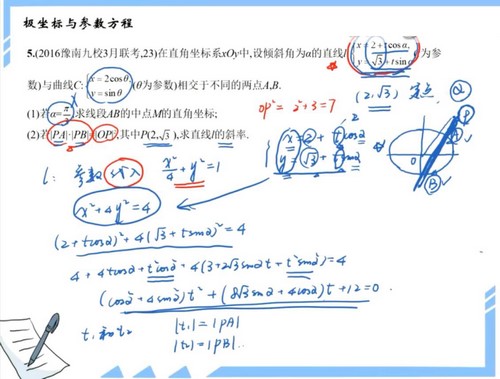 极坐标与参数方程
5.(2016豫南九校3月联考,23)在直角坐标系xOy中,设倾斜角为α的直线l: {x=2+tcosα, y=√3+tsinα (t为参
数)与曲线C: {x=2cosθ, y=sinθ (θ为参数)相交于不同的两点A,B.
(1)若α=π/3,求线段AB的中点M的直角坐标;
OP²=2²+3=7
(2,√3) 定点
(2)若|PA|·|PB|=|OP|²,其中P(2,√3),求直线l的斜率.
{x=2+tcosα
y=√3+tsinα
P
A
O
B
l: 参数 代入 x²/4+y²=1
x²+4y²=4
(2+tcosα)²+4(√3+tsinα)²=4
4+4tcosα+t²cos²α+4(3+2√3sinαt+t²sin²α)=4
(cos²α+4sin²α)t²+(8√3sinα+4cosα)t+12=0
t₁和t₂ |t₁|=|PA|
|t₂|=|PB|..